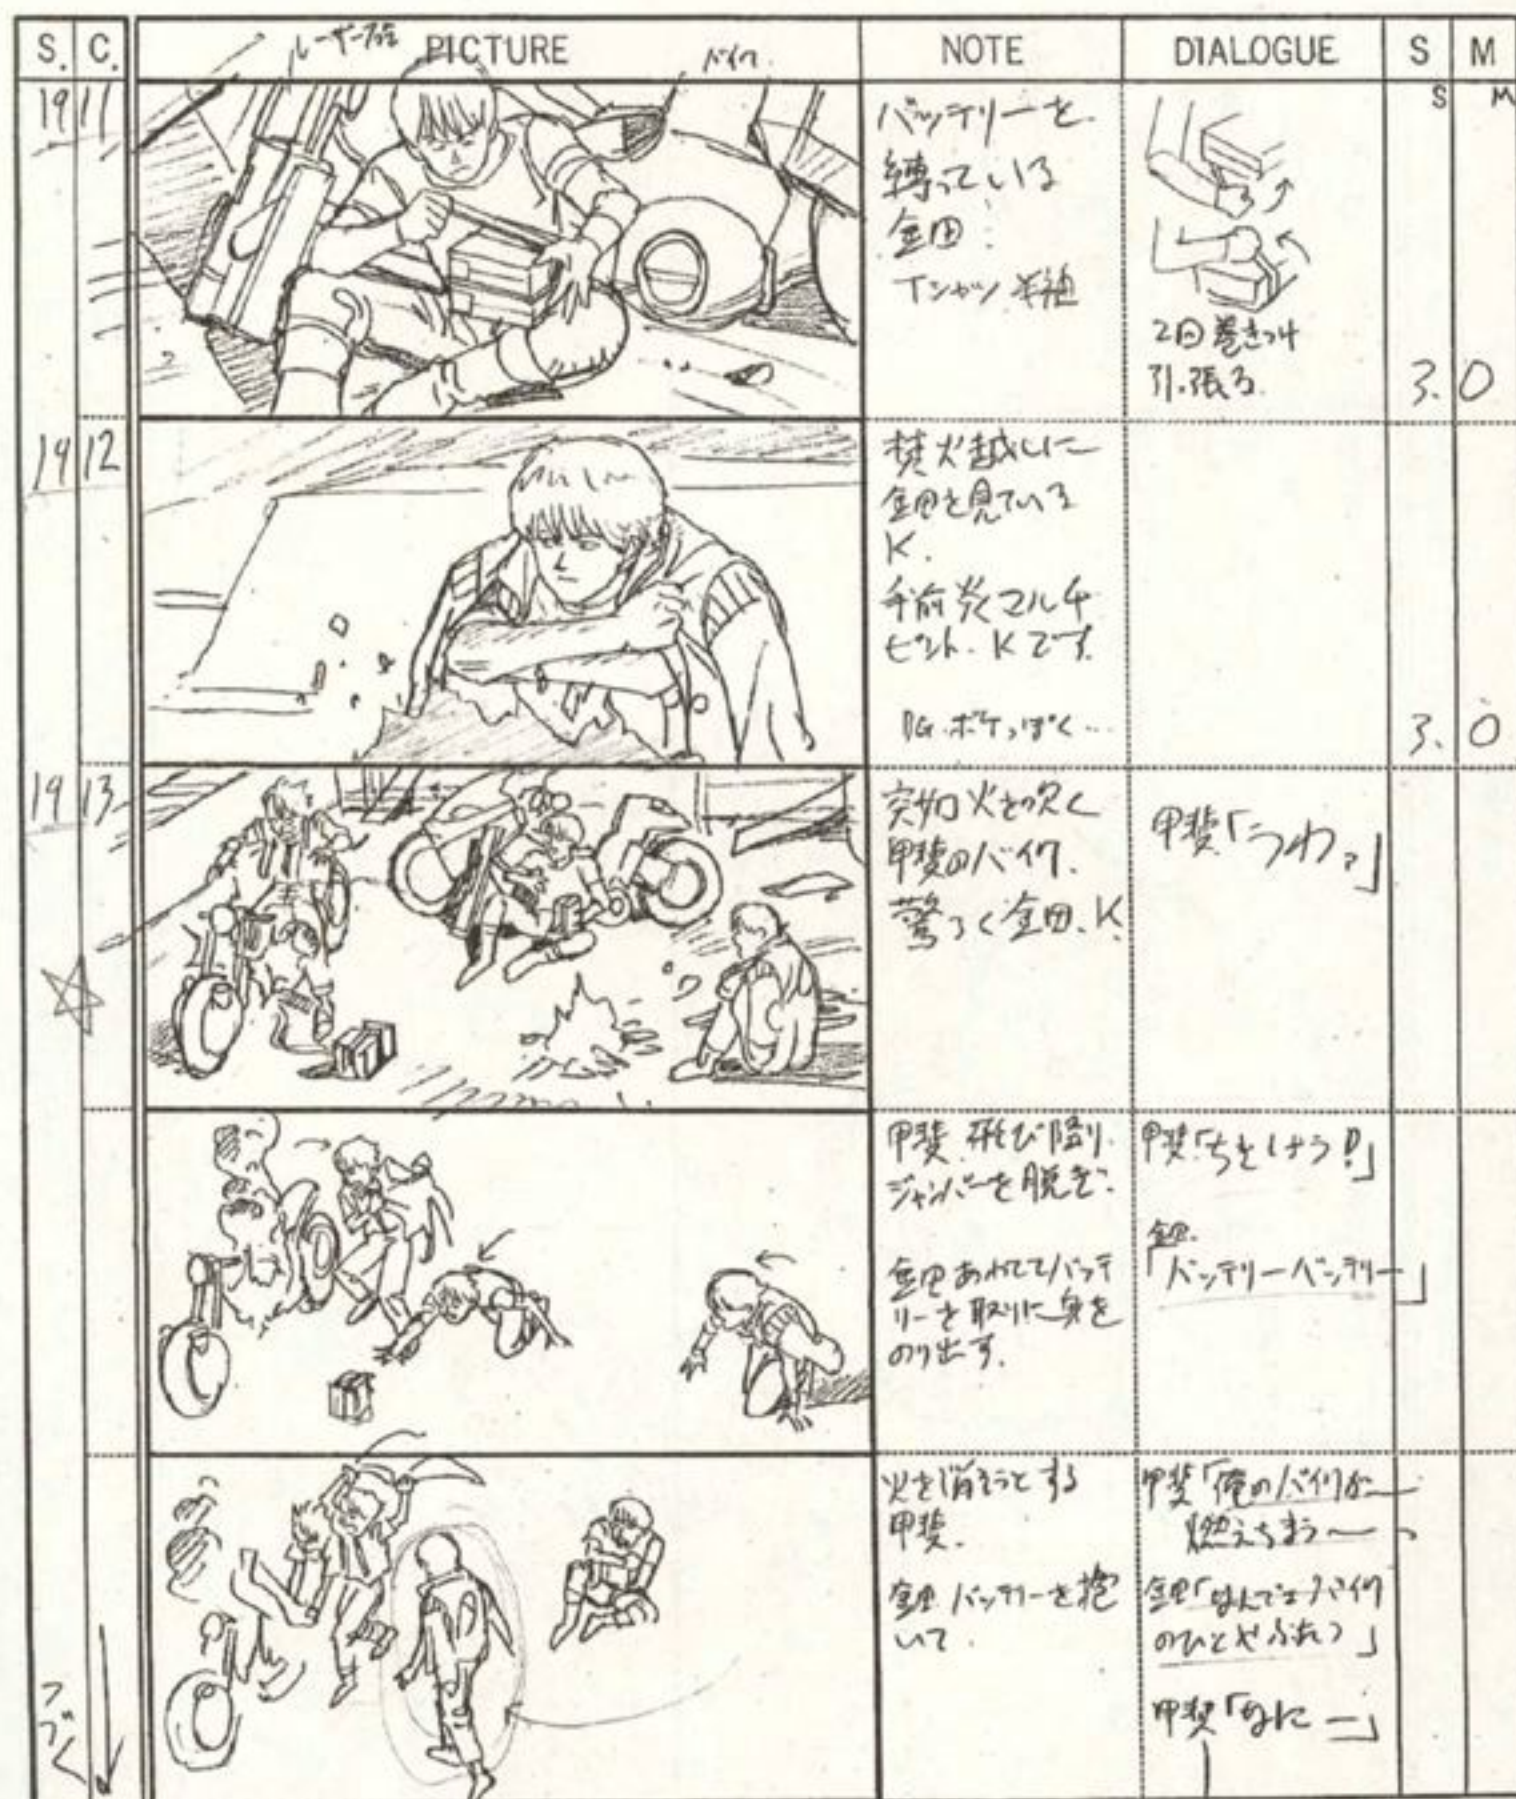 S. C. PICTURE NOTE DIALOGUE S M
バイク
S M
19 11
バッテリーを
縛っている
金田.
2回巻きつけ
引張る.
3. 0
19 12
焚火越しに
金田を見ている
K.
手前炎マルチ
ピント. Kです.
BG.ボケっぽく…
3. 0
19 13
突如火を吹く
甲斐のバイク.
驚ろく金田.K.
甲斐「うわっ」
甲斐.飛び降り.
ジャンパーを脱ぎ.
金田あわててバッテ
リーを取りに身を
のり出す.
甲斐「ちきしょう!」
金田.
「バッテリーバッテリー」
火を消そうとする
甲斐.
金田バッテリーを抱
いて.
甲斐「俺のバイクがー
燃えちまうー
金田「なんでえバイク
のひとつやふたつ」
甲斐「なにー」
つづく